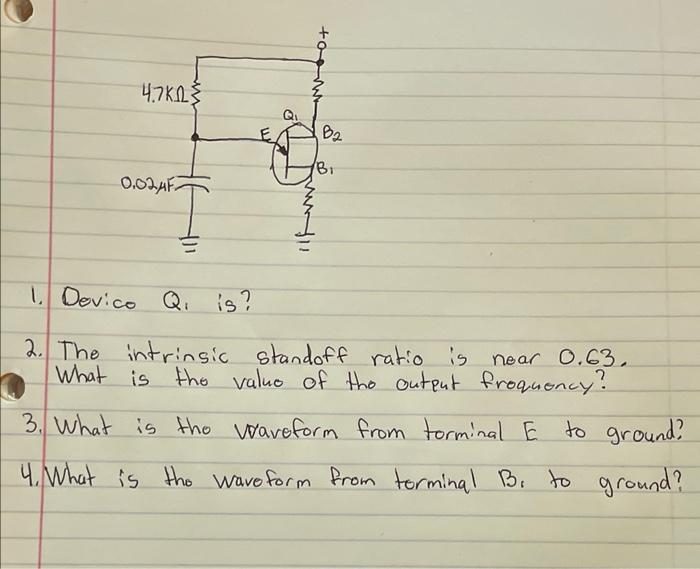 +
4.7KΩ
Q1
E
B2
B1
0.02µF
1. Device Q1 is?
2. The intrinsic standoff ratio is near 0.63.
What is the value of the output frequency?
3. What is the waveform from terminal E to ground?
4. What is the waveform from terminal B1 to ground?